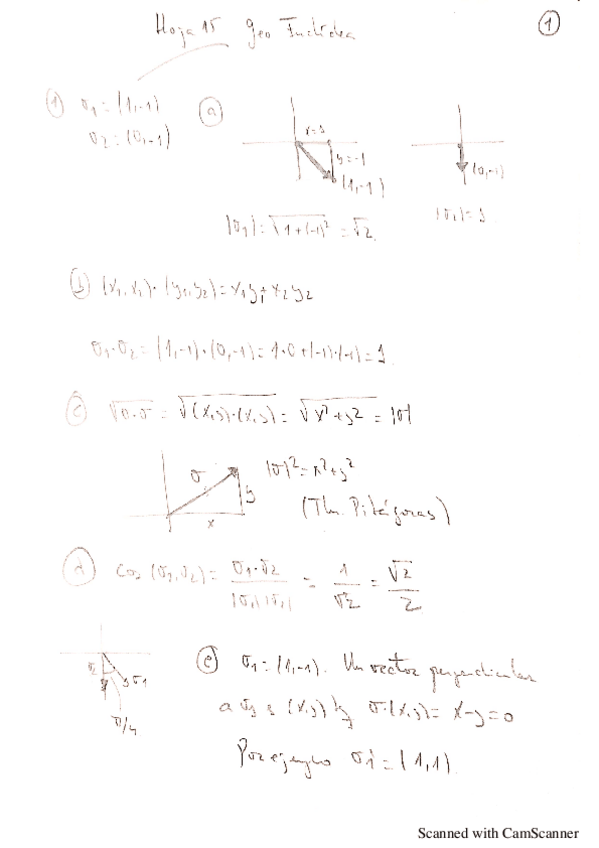 Hoja 15 Geo Euclídea
1
① σ1 = (1,-1)
σ2 = (0,-1)
ⓐ
x=1
y=-1
(1,-1)
(0,-1)
|σ1| = √1+(-1)² = √2.
|σ2| = 1
ⓑ (x1,x2)·(y1,y2) = x1y1+x2y2
σ1·σ2 = (1,-1)·(0,-1) = 1·0+(-1)·(-1) = 1.
ⓒ √σ·σ = √(x,y)·(x,y) = √x²+y² = |σ|
σ
y
x
|σ|² = x²+y²
(Thm. Pitágoras)
ⓓ cos (σ1,σ2) = σ1·σ2 / |σ1||σ2| = 1/√2 = √2/2
σ1
π/4
ⓔ σ1 = (1,-1). Un vector perpendicular
a σ1 es (x,y) tq σ·(x,y) = x-y=0
Por ejemplo = (1,1).
Scanned with CamScanner